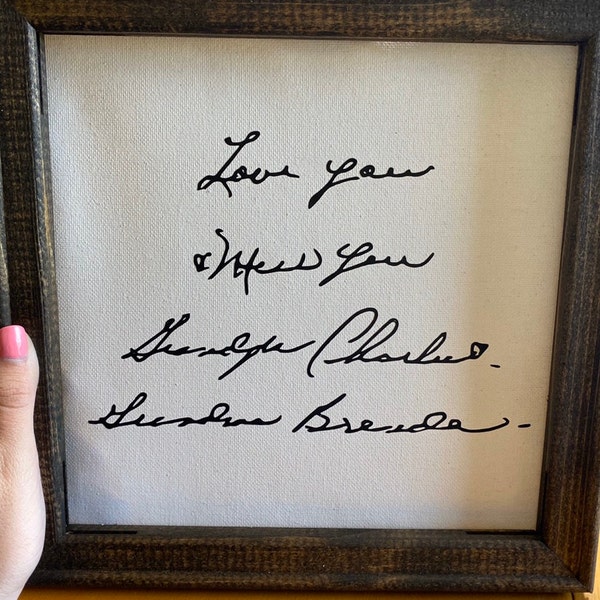 Love you
& Miss You
Grandpa Charlie.
Grandma Brenda.